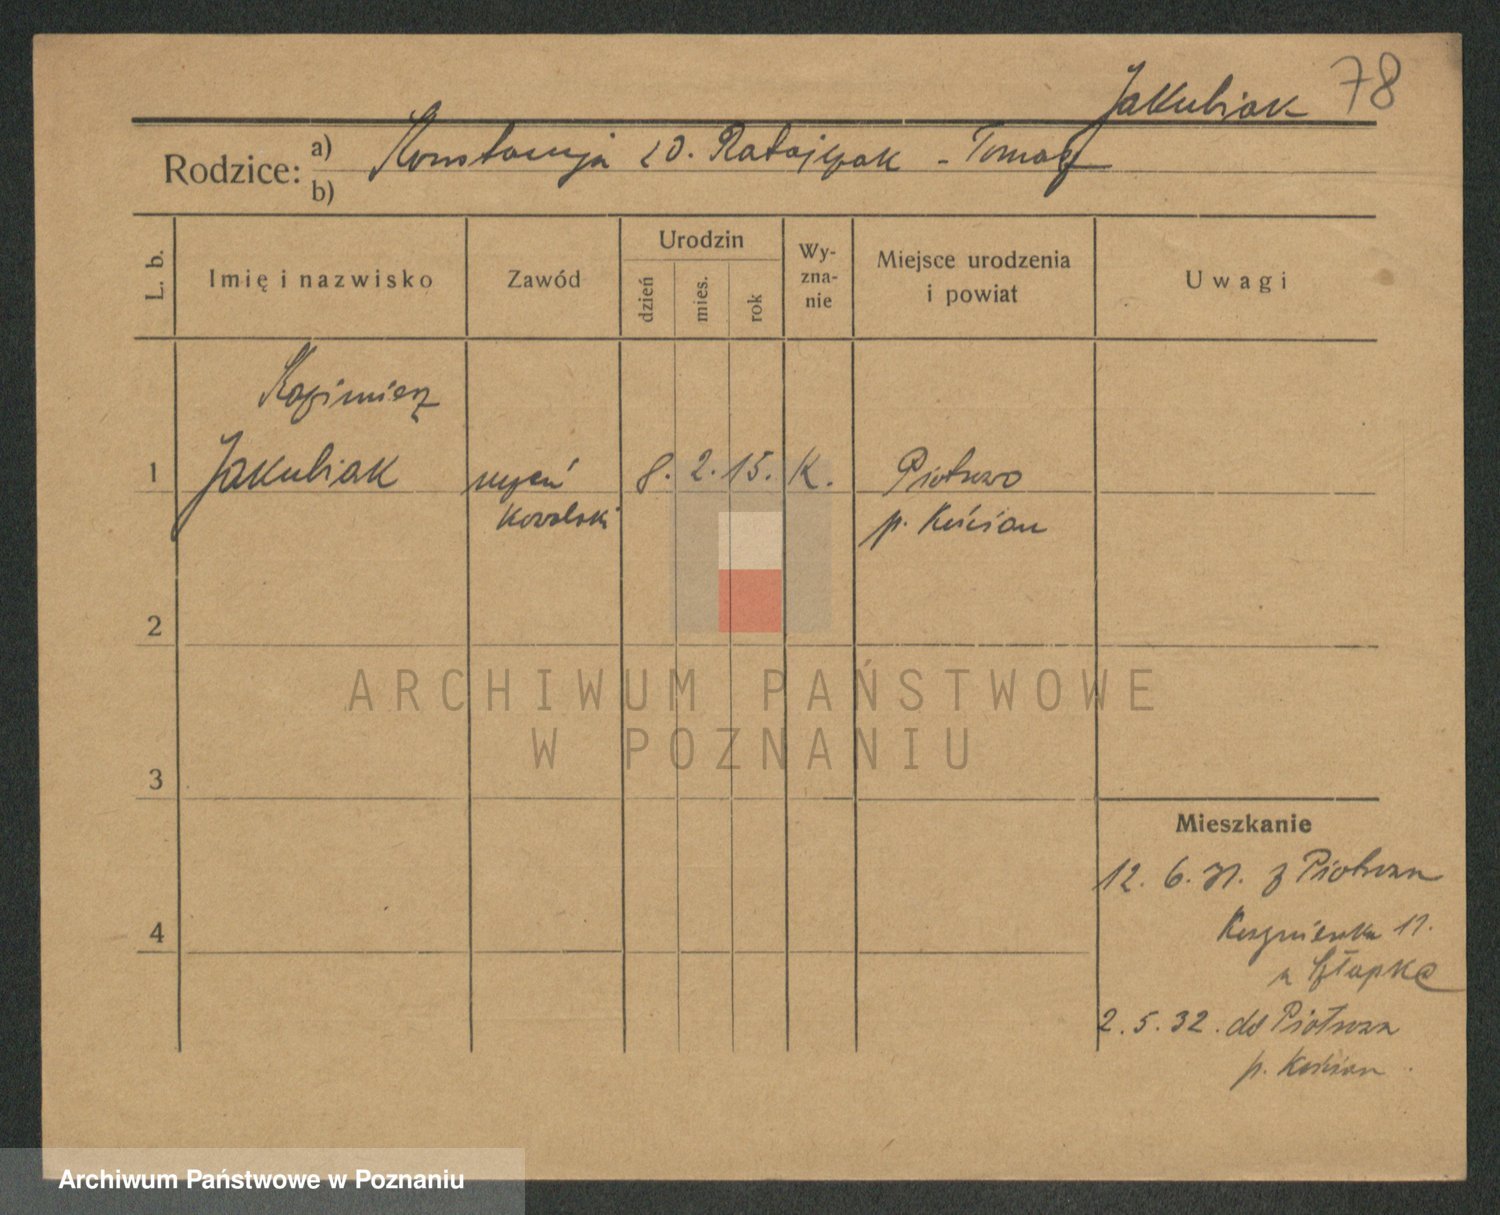 Jakubiak 78
Rodzice: a) Konstancja z d. Ratajczak - Tomasz
b)
L. b.
Imię i nazwisko
Zawód
Urodzin
dzień
mies.
rok
Wy-
zna-
nie
Miejsce urodzenia
i powiat
Uwagi
Kazimierz
1 Jakubiak uczeń 8. 2. 15. K. Piotrowo
kowalski p. Kościan
2
ARCHIWUM PAŃSTWOWE
W POZNANIU
3
Mieszkanie
12. 6. 31. z Piotrowa
4 17.
u Szłapka
2. 5. 32. do Piotrowa
p. Kościan
Archiwum Państwowe w Poznaniu